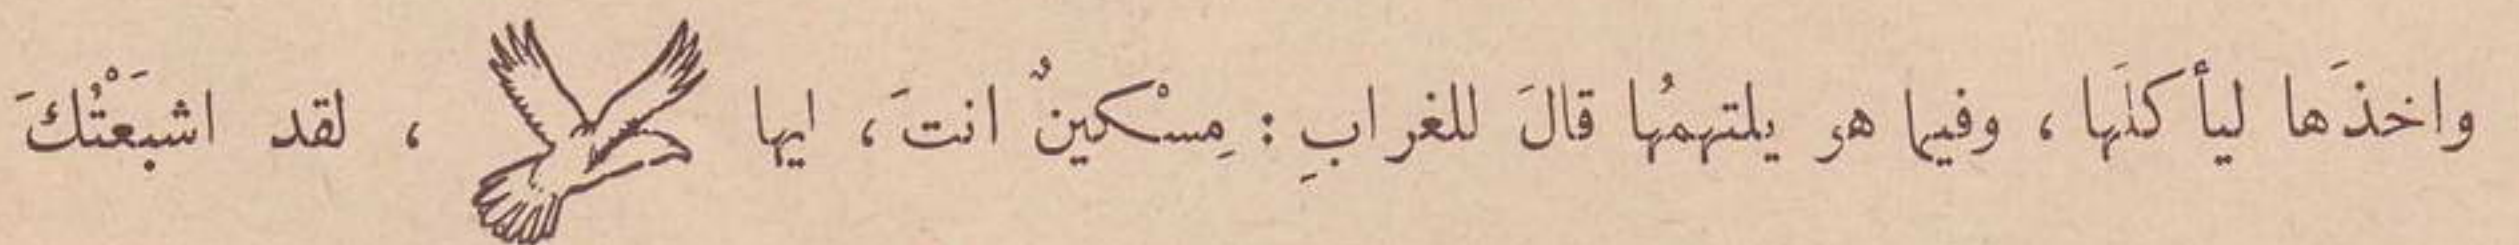 واخذَها ليأكلَها ، وفيما هو يلتهمُها قالَ للغرابِ : مِسْكينٌ انتَ ، ايها ، لقد اشبَعْتُكَ